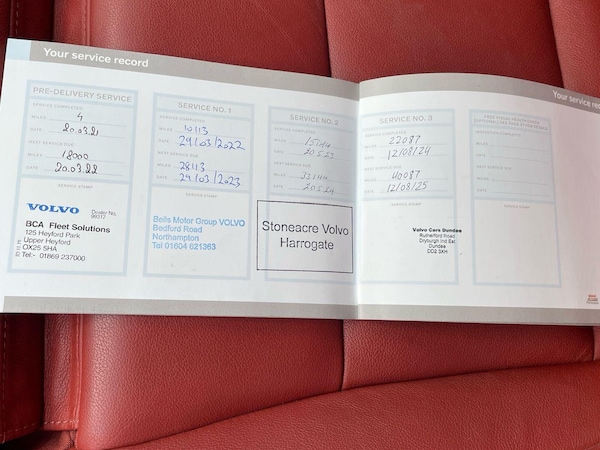 Your service record
PRE-DELIVERY SERVICE
SERVICE COMPLETED
MILES 4
DATE 20.03.21
NEXT SERVICE DUE
MILES 18000
DATE 20.03.22
SERVICE STAMP
VOLVO
Dealer No.
BCA Fleet Solutions
125 Heyford Park
Upper Heyford
OX25 5HA
Tel:- 01869 237000
SERVICE NO. 1
SERVICE COMPLETED
MILES 10113
DATE 29/03/2022
NEXT SERVICE DUE
MILES 28113
DATE 29/03/2023
SERVICE STAMP
Bells Motor Group VOLVO
Bedford Road
Northampton
Tel 01604 621363
SERVICE NO. 2
SERVICE COMPLETED
MILES 15144
DATE 20.5.23
NEXT SERVICE DUE
MILES 33144
DATE 20.5.24
SERVICE STAMP
Stoneacre Volvo
Harrogate
SERVICE NO. 3
SERVICE COMPLETED
MILES 22087
DATE 12/08/24
NEXT SERVICE DUE
MILES 40087
DATE 12/08/25
SERVICE STAMP
Volvo Cars Dundee
Rutherford Road
Dryburgh Ind Est
Dundee
DD2 3XH
Your service rec
MILES
DATE
NEXT SERVICE DUE
MILES
DATE
SERVICE STAMP